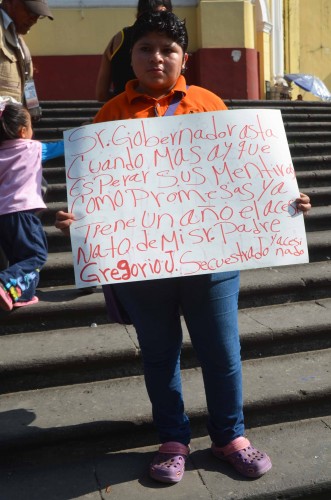 Sr. Gobernador asta
Cuando Mas ay que
Esperar sus Mentiras
Como Promesas Ya
Tiene un año el acesi
Nato de Mi Sr. Padre
Gregorio J. Secuestrado y acesi
nado